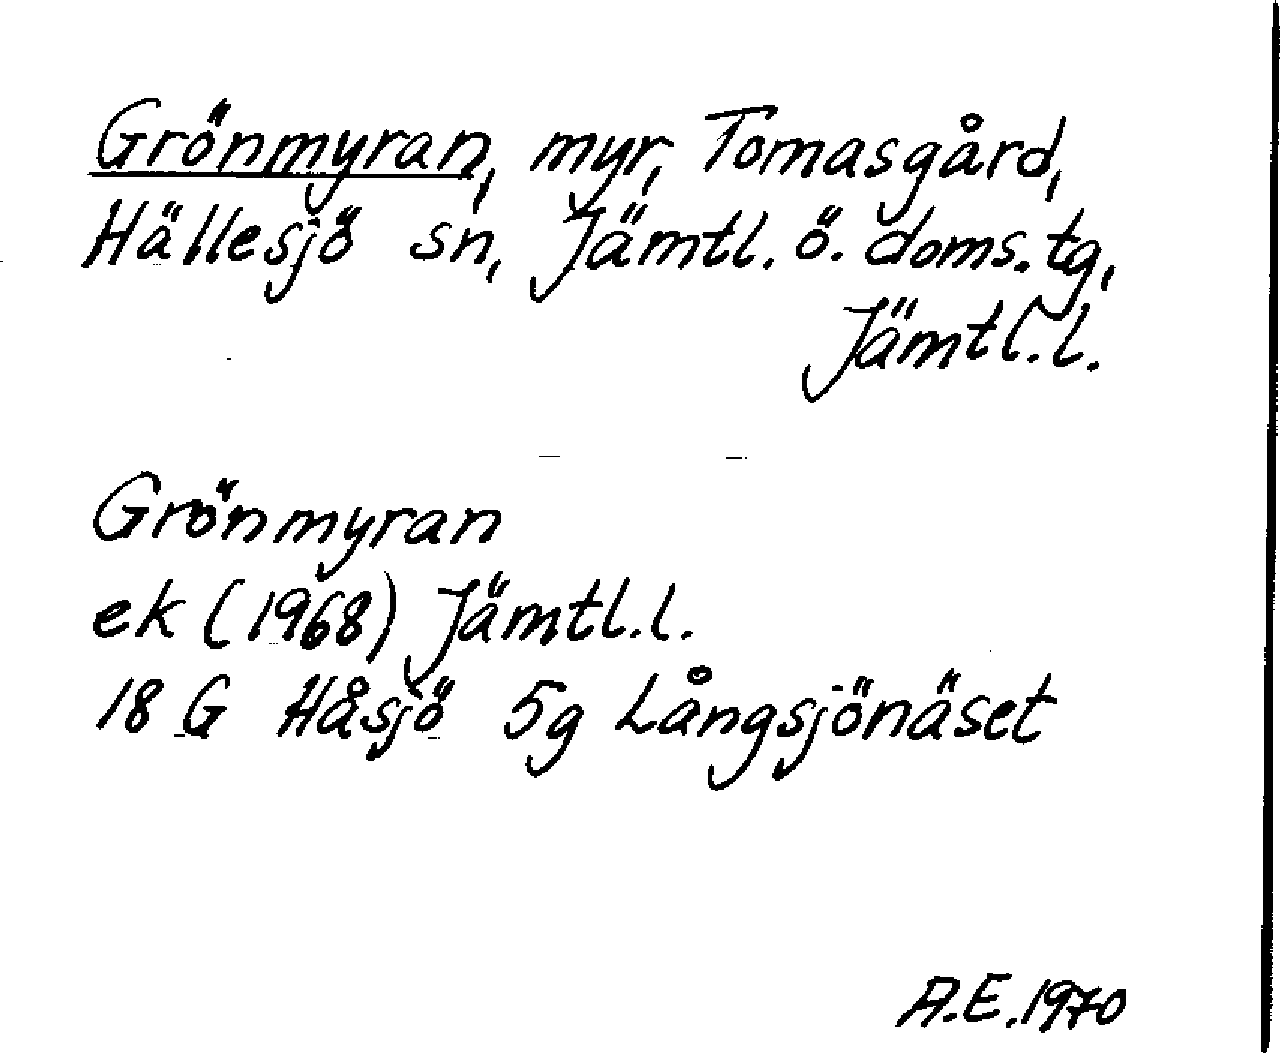 Grönmyran, myr, Tomasgård,
Hällesjö sn, Jämtl. ö. doms. tg,
Jämtl. l.
Grönmyran
ek (1968) Jämtl. l.
18 G Håsjö 5g Långsjönäset
A.E. 1970